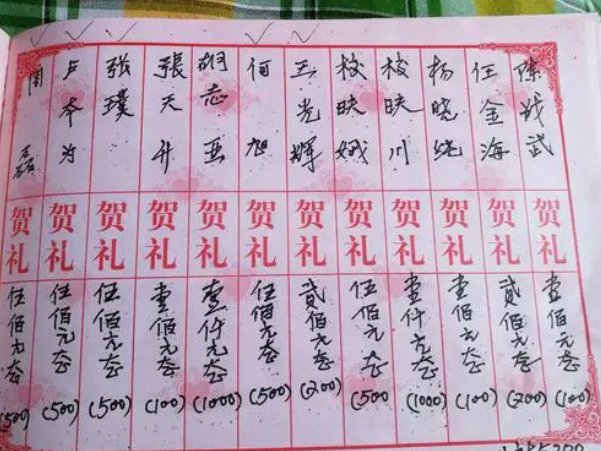 陈战武 贺礼 壹佰元整 (100)
任金海 贺礼 贰佰元整 (200)
杨晓 贺礼 壹佰元整 (100)
校映川 贺礼 壹仟元整 (1000)
校映娥 贺礼 伍佰元整 (500
王光辉 贺礼 贰佰元整 (200)
何旭 贺礼 伍佰元整 (500)
胡志亚 贺礼 壹仟元整 (1000)
張天升 贺礼 壹佰元整 (100)
张璞 贺礼 伍佰元整 (500)
卢本为 贺礼 伍佰元整 (500)
周磊 贺礼 伍佰元整 (500)
5200